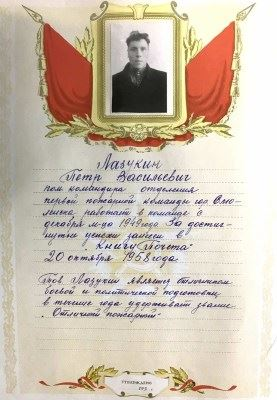 Лазукин
Петр Васильевич
пом. командира отделения
первой пожарной команды гор. Смо-
ленска, работает в команде с
декабря м-ца 1949 года. За достиг-
нутые успехи занесен в
Книгу Почета
20 октября 1958 года
Тов. Лазукин является отличником
боевой и политической подготовки,
в течение года удерживает звание
„Отличный пожарный"
УТВЕРЖДЕНО
195